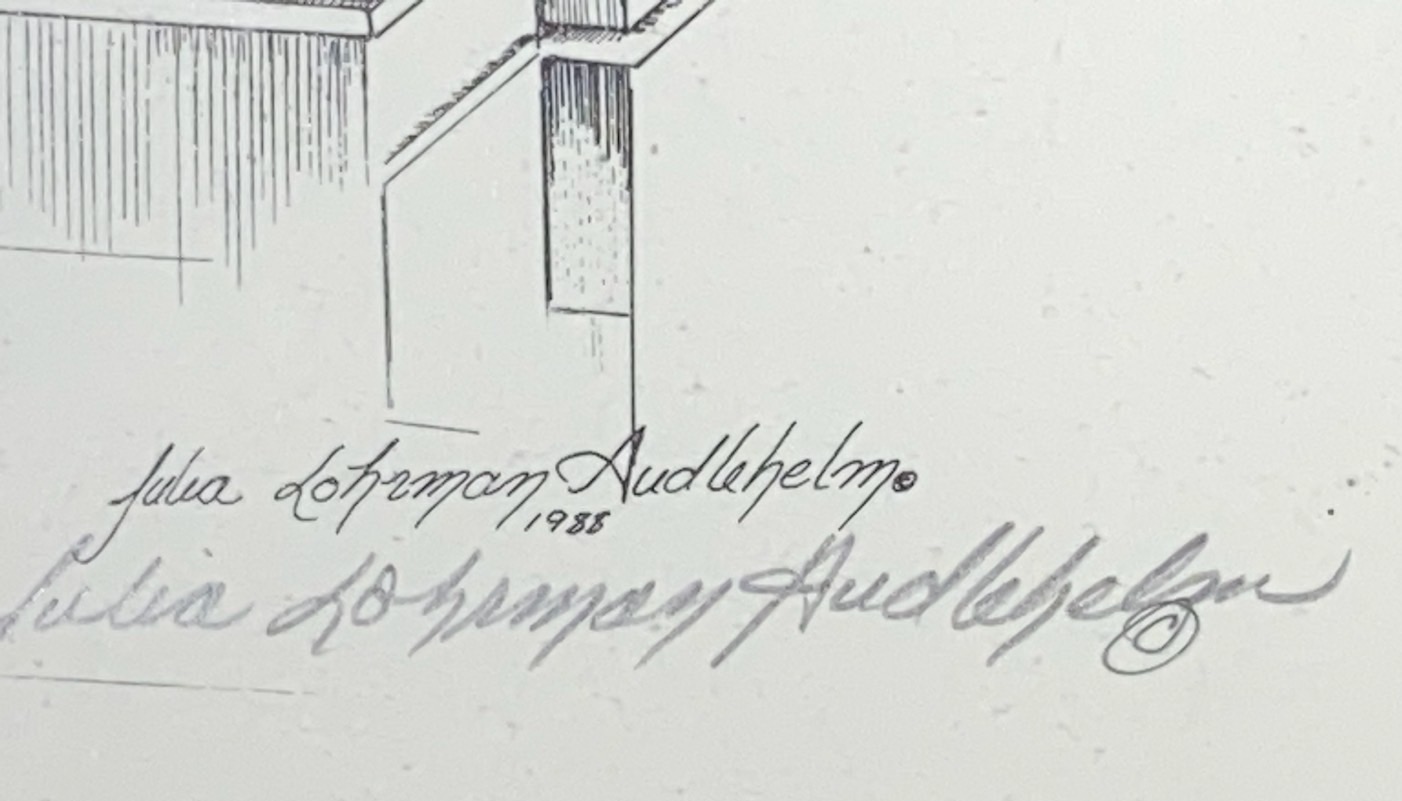 Julia Lohrman Audlehelm©
1988
Julia Lohrman Audlehelm
©